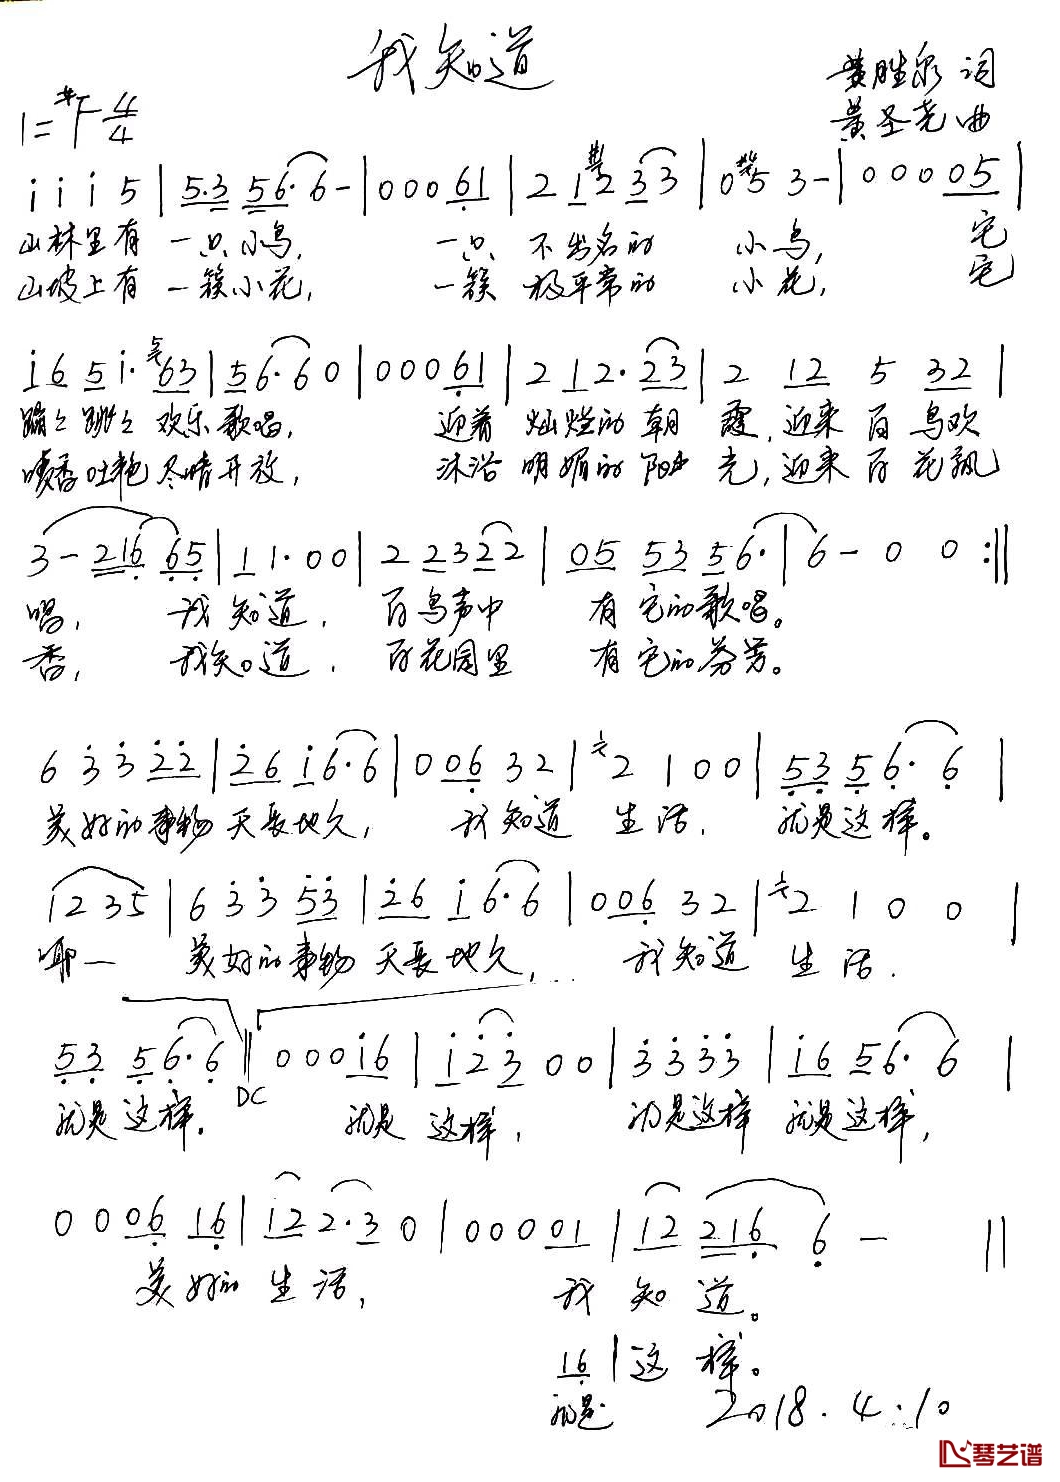 我知道
黄胜泉 词
黄圣尧 曲
1=#F 4/4
i i i 5 | 5·3 56·6- | 0 0 0 61 | 2 1 2 33 | 0 5 3 - | 0 0 0 05 |
山林里有 一只小鸟, 一只 不出名的 小鸟, 它
山坡上有 一簇小花, 一簇 极平常的 小花, 它
i6 5 i· 63 | 56·60 | 0 0 0 61 | 2 12·23 | 2 12 5 32 |
蹦々跳々 欢乐歌唱, 迎着 灿烂的朝 霞,迎来 百 鸟欢
喷香吐艳 尽情开放, 沐浴 明媚的阳 光,迎来 百 花飘
3 - 216 65 | 1 1·0 0 | 2 2322 | 05 53 56· | 6 - 0 0 :||
唱, 我知道, 百鸟声中 有它的歌唱。
香, 我知道, 百花园里 有它的芬芳。
6 3 3 22 | 26 i6·6 | 0 06 32 | 2 1 0 0 | 53 56· 6 |
美好的事物 天长地久, 我知道 生活, 就是这样。
1235 | 6 3 3 53 | 26 i 6·6 | 006 32 | 2 1 0 0 |
耶一 美好的事物 天长地久, 我知道 生活,
53 56·6 || 0 0 0 i6 | i 2 3 0 0 | 3 3 3 3 | i6 56· 6 |
DC
就是这样。 就是 这样, 就是这样 就是这样,
0 0 06 16 | 12 2·3 0 | 0 0 0 01 | 12 216 6 - ||
美 好的 生活, 我 知 道。
16 | 这 样。
就是
2018.4.10
琴艺谱